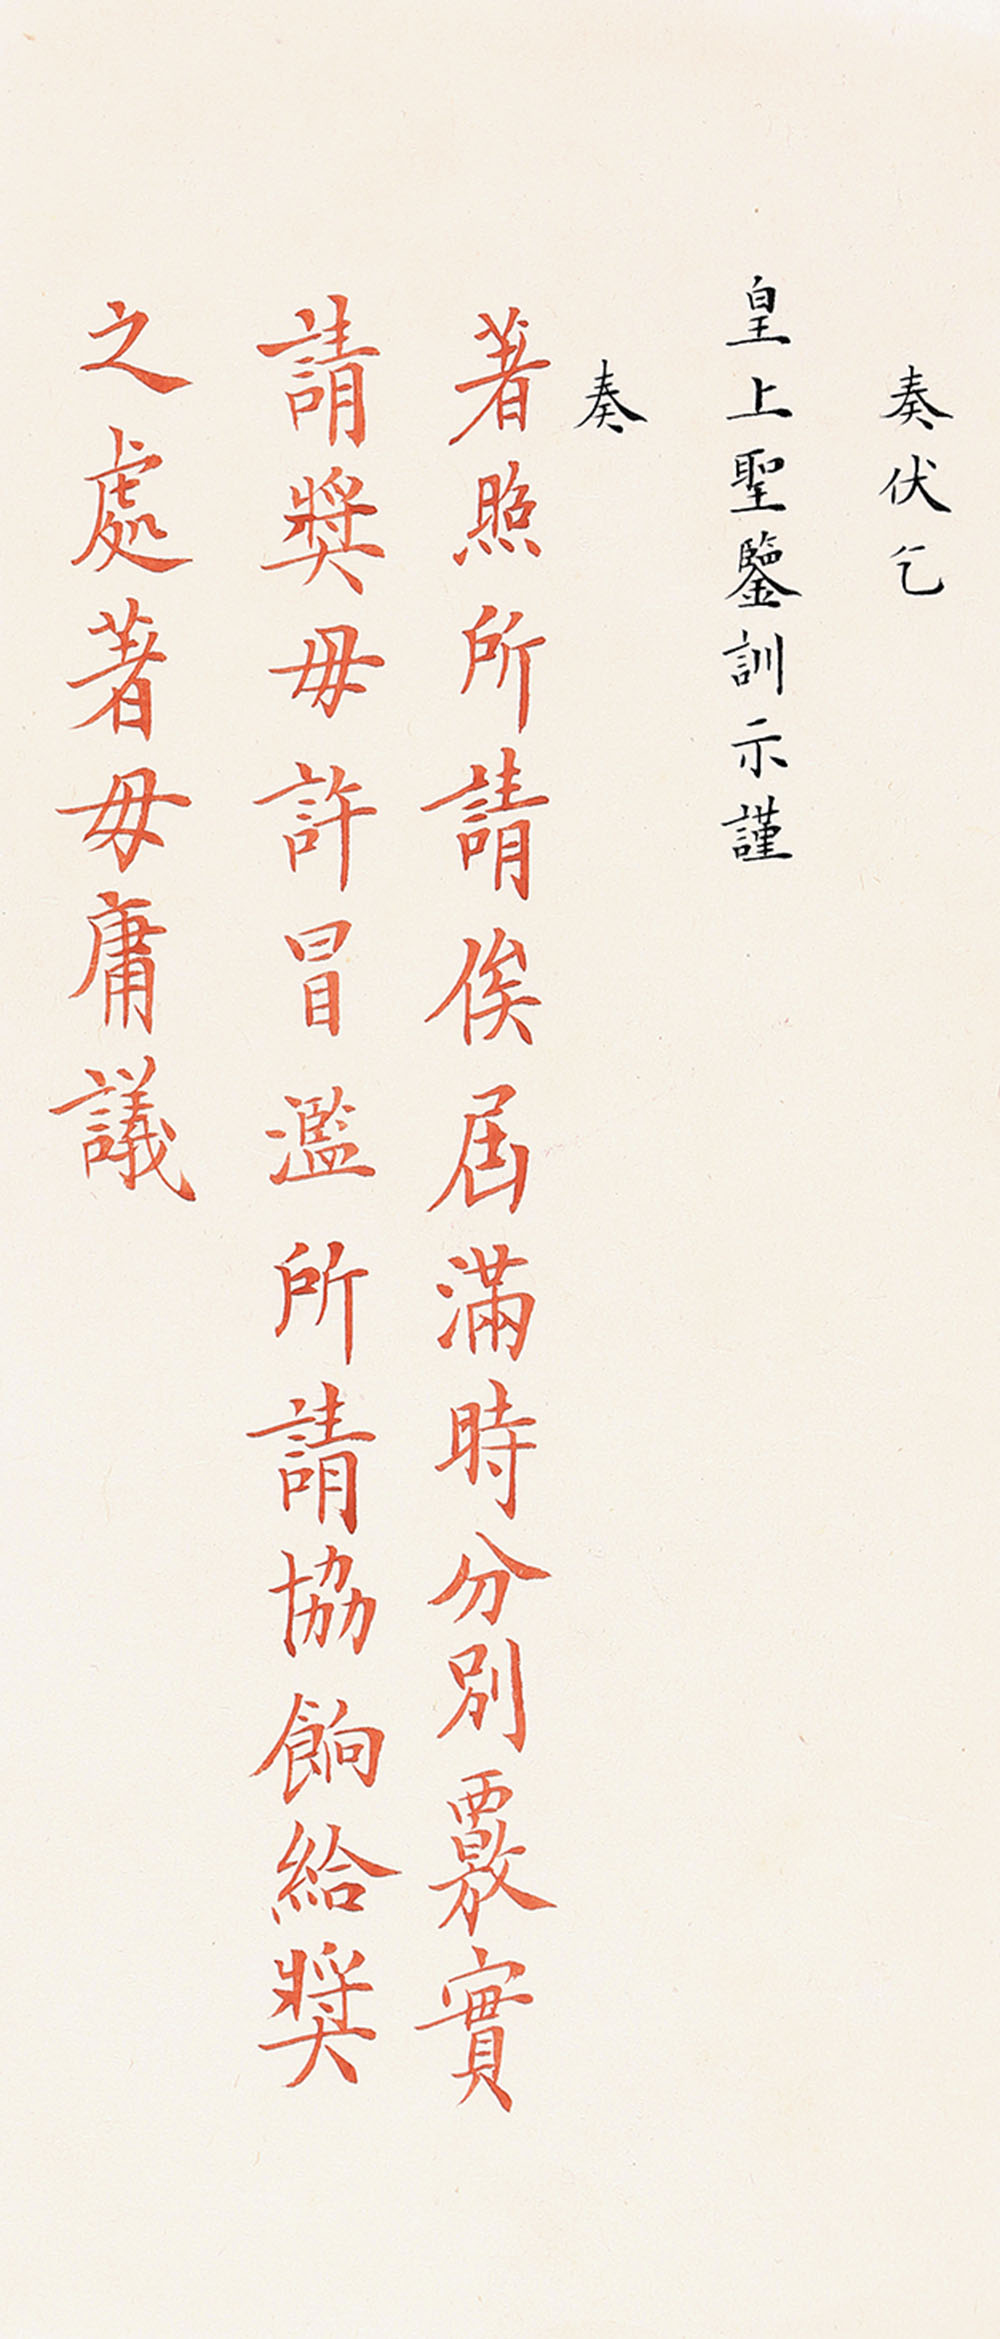 奏伏乞
皇上聖鑒訓示謹
奏
著照所請俟屆滿時分別覈實
請獎毋許冒濫所請協餉給獎
之處著毋庸議